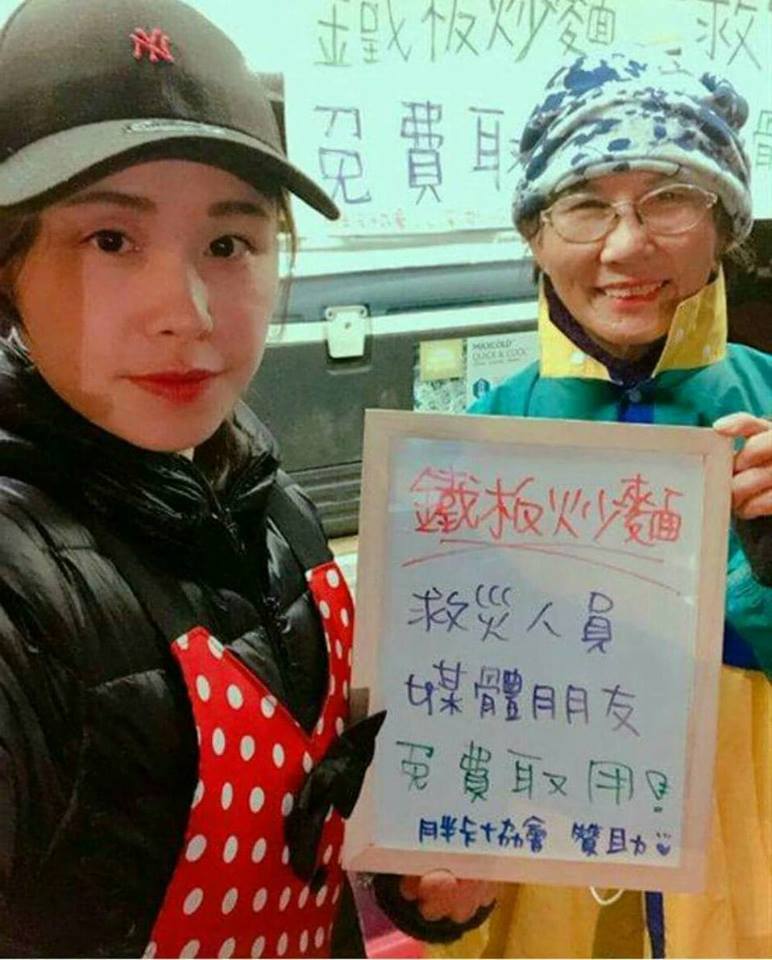 鐵板炒麵 救
免費取
NY
MAXCOLD
QUICK & COOL
鐵板炒麵
救災人員
媒體朋友
免費取用!
胖卡協會 贊助